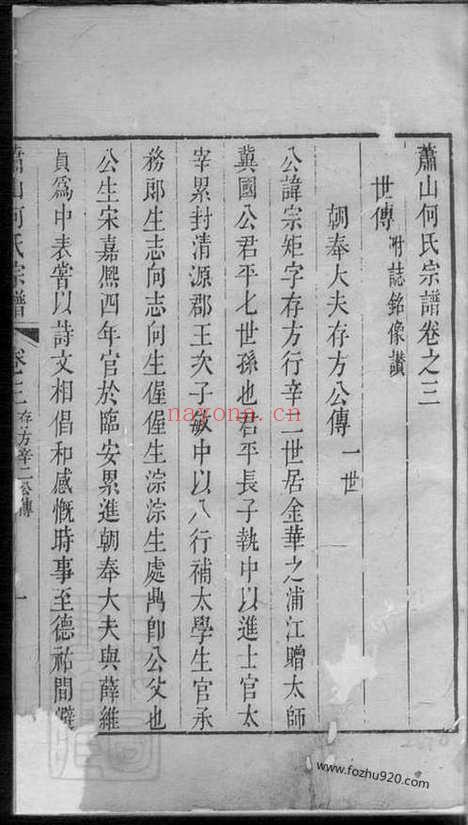 蕭山何氏宗譜卷之三
世傳 附誌銘像讃
朝奉大夫存方公傳 一世
公諱宗矩字存方行辛二世居金華之浦江贈太師
冀國公君平七世孫也君平長子執中以進士官太
宰累封清源郡王次子敏中以八行補太學生官承
務郎生志向志向生偓偓生淙淙生處禼卽公父也
公生宋嘉熙四年官於臨安累進朝奉大夫與薛維
貞爲中表嘗以詩文相倡和感慨時事至德祐間避
蕭山何氏宗譜 卷之三 存方辛二公傳 一
nayona.cn
www.fozhu920.com